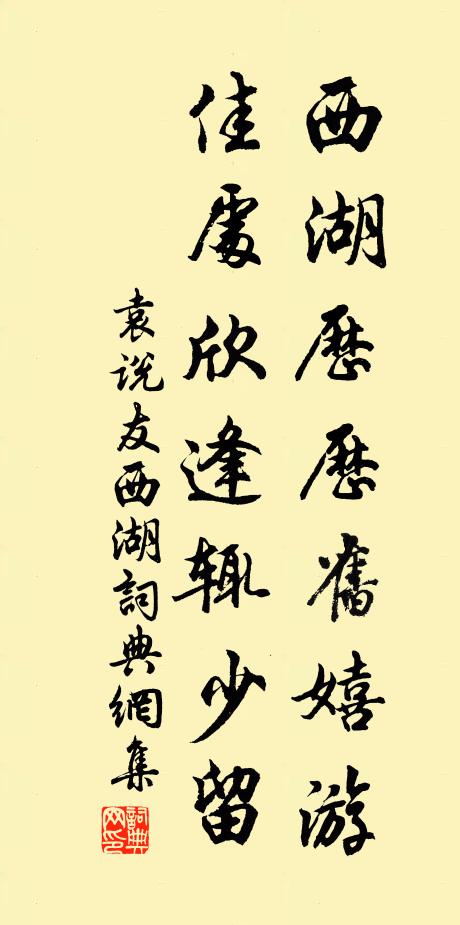 西湖歷歷舊嬉游
佳處欣逢輒少留
袁说友西湖詞典網集
詞典网印